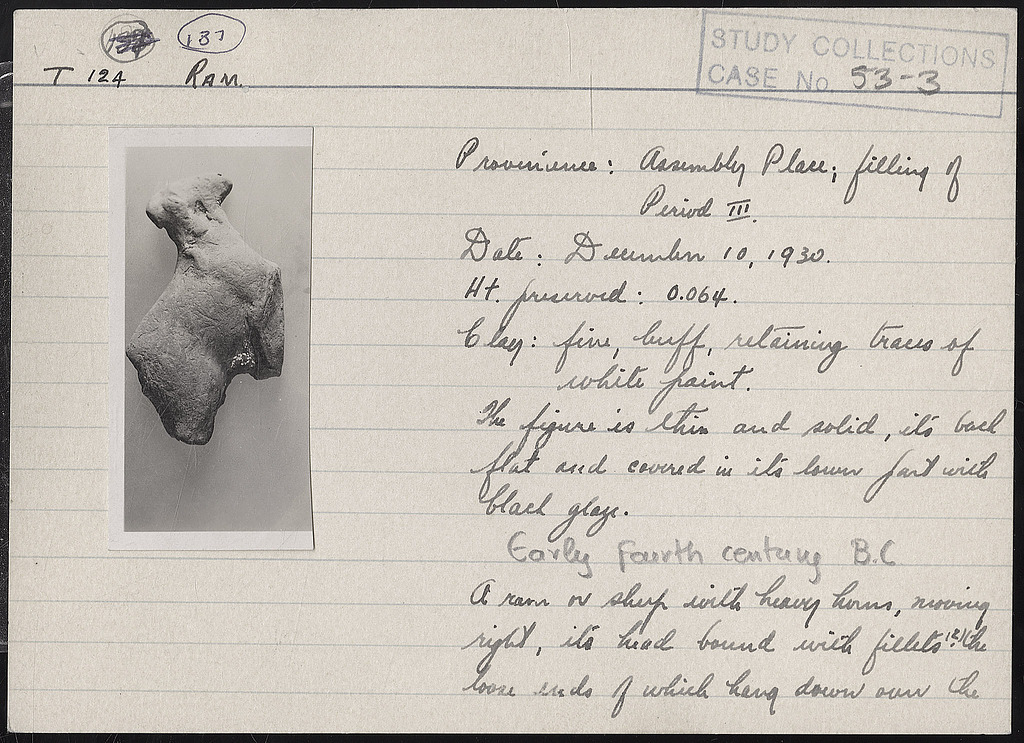 137
STUDY COLLECTIONS
T 124 Ram.
CASE No. 53-3
Provenience: Assembly Place; filling of
Period III.
Date: December 10, 1930.
Ht. preserved: 0.064.
Clay: fine, buff, retaining traces of
white paint.
The figure is thin and solid, its back
flat and covered in its lower part with
black glaze.
Early fourth century B.C
A ram or sheep with heavy horns, moving
right, its head bound with fillets (?) the
loose ends of which hang down over the